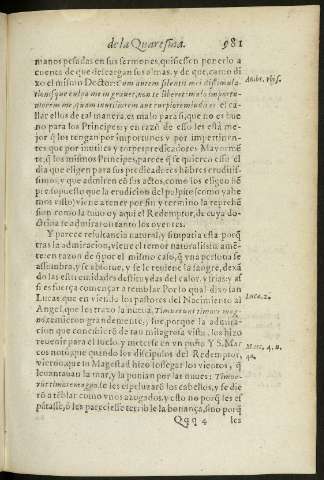 de la Quaresma. 981
manos pesadas en sus sermones, quisiessen ponerlo a
cuenta de que descargan sus almas, y de que, como di
xo el mismo Doctor: Cum autem silentii mei dissimula-
tionisque culpa me ingrauet, non te liberet: malo importu-
niorem me, quam inutiliorem aut turpiorem iudices: el ca-
llar ellos de tal manera, es malo para si, que no es bue
no para los Principes: y en razõ de esso les està me-
jor q̃ los tengan por importunos y por impertinen-
tes que por inutiles y torpes predicadores. Mayormẽ
te, q̃ los mismos Principes, parece q̃ se quierea esso el
dia que eligen para sus predicadores hõbres eruditis-
simos, y que admiren en sus actos, como los eligen: sien
presupuesto que la erudicion del pulpito (como yahe
mos visto) viene a tener por fin y termino la reprehẽ
sion como la tuuo oy aqui el Redemptor, de cuya do-
ctrina se admiraron tanto los oyentes.
Y parece relulencia natural, y simpatia esta porq̃
tras la admiracion, viene el temor naturalissimamẽ-
te: en razon de q̃ por el mismo caso, q̃ vna persona se
assombra, y se absorue, y se le retiene la sangre, dexã
do las estremidades destituydas del calor vitrias: y assi
es fuerça començar a temblar. Por lo qual dixo san
Lucas que en viendo los pastores del Nacimiento al
Angel que les traxo la nueua, Timuerunt timore mag-
no, temieron grandemente, fue, porque la admira-
cion que concibierõ de tan milagrosa vista, los hizo
reuenir para el suelo, y meterse en vn puño Y S. Mar
cos notò que quando los discipulos del Redemptor,
vieron que su Magestad hizo sossegar los vientos, q̃
leuantauan la mar, y la ponian por las nuues: Timue-
runt timore magno, se les espeluzarõ los cabellos, y se die
rõ a tẽblar como vnos azogados, y esto no porq̃ les es
pãtasse, õ les pareciesse terrible la bonança, sino porq̃
Qqq 4 les
Ambr. vbi s.
Luca. 2.
Marc. 4. n.
41.